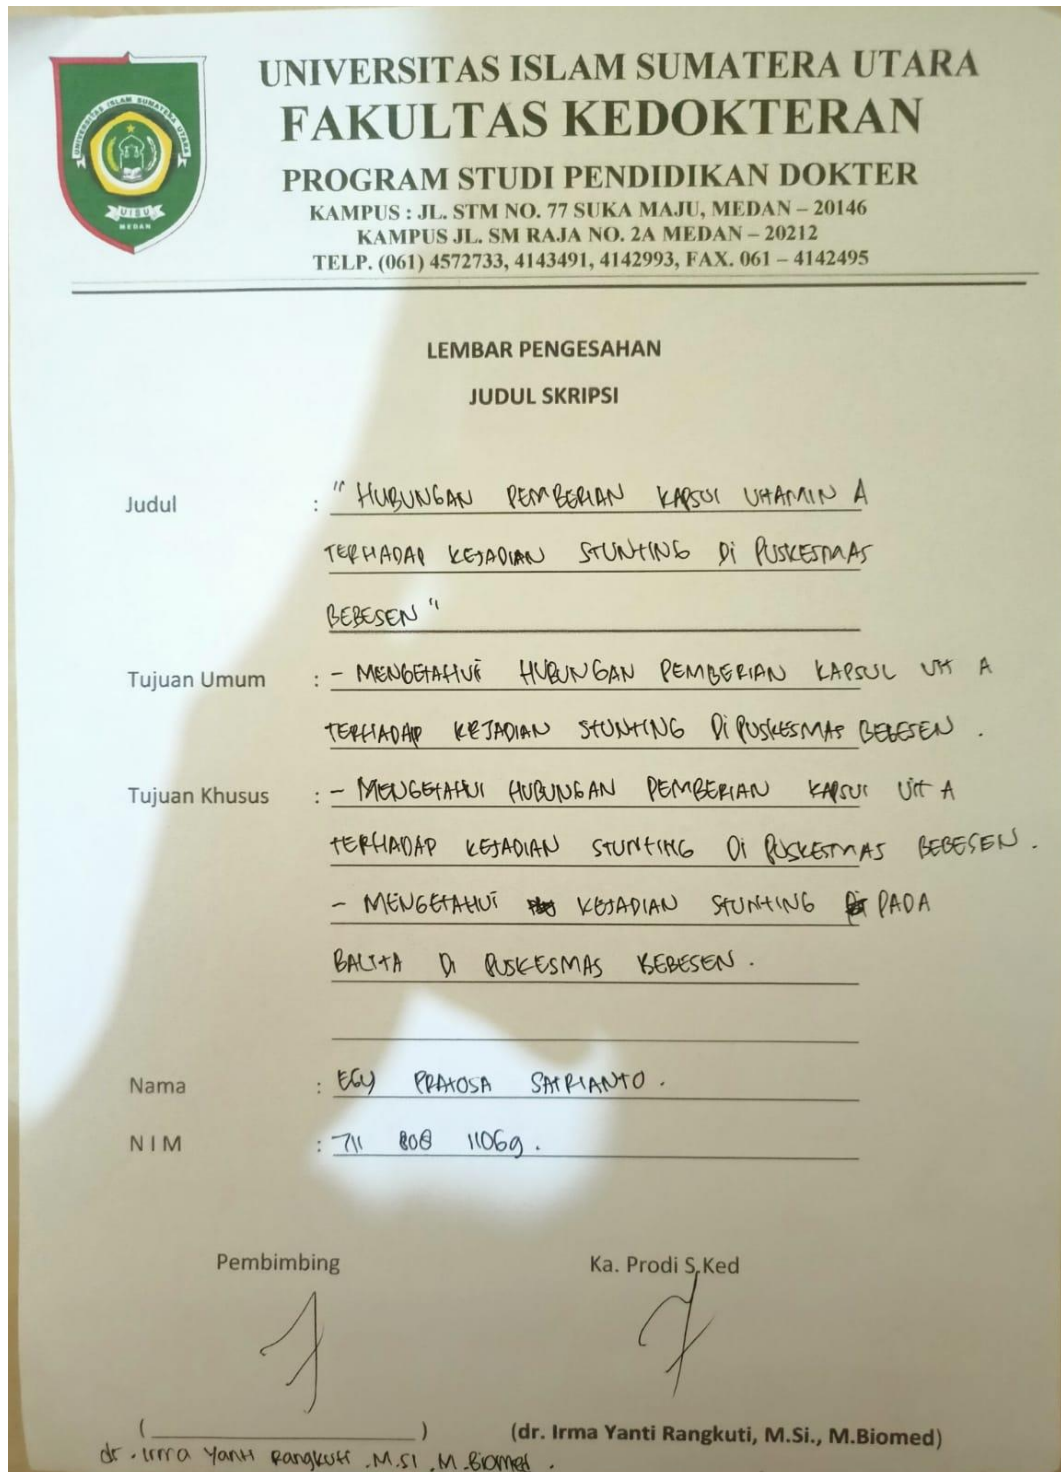 UNIVERSITAS ISLAM SUMATERA UTARA
UISU
MEDAN
UNIVERSITAS ISLAM SUMATERA UTARA
FAKULTAS KEDOKTERAN
PROGRAM STUDI PENDIDIKAN DOKTER
KAMPUS : JL. STM NO. 77 SUKA MAJU, MEDAN – 20146
KAMPUS JL. SM RAJA NO. 2A MEDAN – 20212
TELP. (061) 4572733, 4143491, 4142993, FAX. 061 – 4142495
LEMBAR PENGESAHAN
JUDUL SKRIPSI
Judul : " HUBUNGAN PEMBERIAN KAPSUL VITAMIN A
TERHADAP KEJADIAN STUNTING Di PUSKESMAS
BEBESEN "
Tujuan Umum : - MENGETAHUI HUBUNGAN PEMBERIAN KAPSUL VIT A
TERHADAP KEJADIAN STUNTING Di PUSKESMAS BEBESEN .
Tujuan Khusus : - MENGETAHUI HUBUNGAN PEMBERIAN KAPSUL VIT A
TERHADAP KEJADIAN STUNTING Di PUSKESMAS BEBESEN .
- MENGETAHUI KEJADIAN STUNTING PADA
BALITA Di PUSKESMAS BEBESEN .
Nama : EGY PRATOSA SATRIANTO .
N I M : 711 808 11069 .
Pembimbing Ka. Prodi S.Ked
( ) (dr. Irma Yanti Rangkuti, M.Si., M.Biomed)
dr . Irma Yanti Rangkuti . M.SI . M . Biomed .